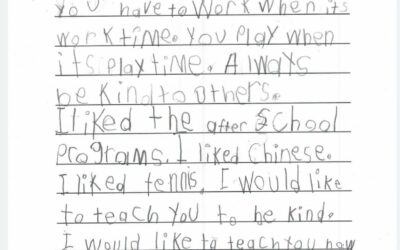 You have to work when its
work time. You play when
its play time. Always
be kind to others.
I liked the after School
programs. I liked Chinese.
I liked tennis. I would like
to teach you to be kind.
I would like to teach you how